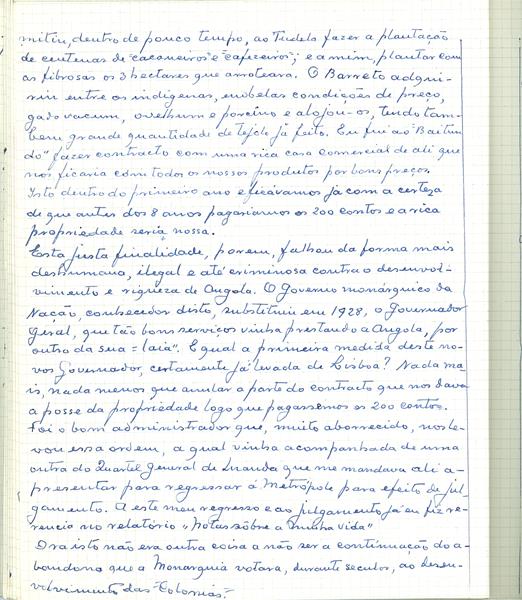 mitiu, dentro de pouco tempo, ao Tudela fazer a plantação
de centenas de "cacaoeiros" e "cafezeiros"; e a mim, plantar com
as fibrosas os 3 hectares que arroteara. O Barreto adqui-
riu entre os indígenas, em belas condições de preço,
gado vacum, ovelhum e porcino e alojou-os, tendo tam-
bem grande quantidade de tejolo já feito. Eu fui ao "Bailun-
do" fazer contracto com uma rica casa comercial de ali que
nos ficaria com todos os nossos produtos por bons preços.
Isto dentro do primeiro ano e ficávamos já com a certeza
de que antes dos 8 anos pagariamos os 200 contos e a rica
propriedade seria nossa.
Esta justa finalidade, porem, falhou da forma mais
deshumana, ilegal e até criminosa contra o desenvol-
vimento e riqueza de Angola. O Governo monárquico da
Nação, conhecedor disto, substituiu em 1928, o Governador
Geral, que tão bons serviços vinha prestando a Angola, por
outro da sua = laia". E qual a primeira medida deste no-
vos Governador, certamente já levada de Lisboa? Nada ma-
is, nada menos que anular a parte do contracto que nos dava
a posse da propriedade logo que pagassemos os 200 contos.
Foi o bom administrador que, muito aborrecido, nos le-
vou essa ordem, a qual vinha acompanhada de uma
outra do Quartel General de Luanda que me mandava ali a-
presentar para regressar á Metrópole para efeito de jul-
gamento. A este meu regresso e ao julgamento já eu fiz re-
rencia no relatório "Notas sôbre a minha vida"
Ora isto não era outra coisa a não ser a continuação do a-
bandono que a Monarquia votara, durante seculos, ao desen-
volvimento das "Colonias"